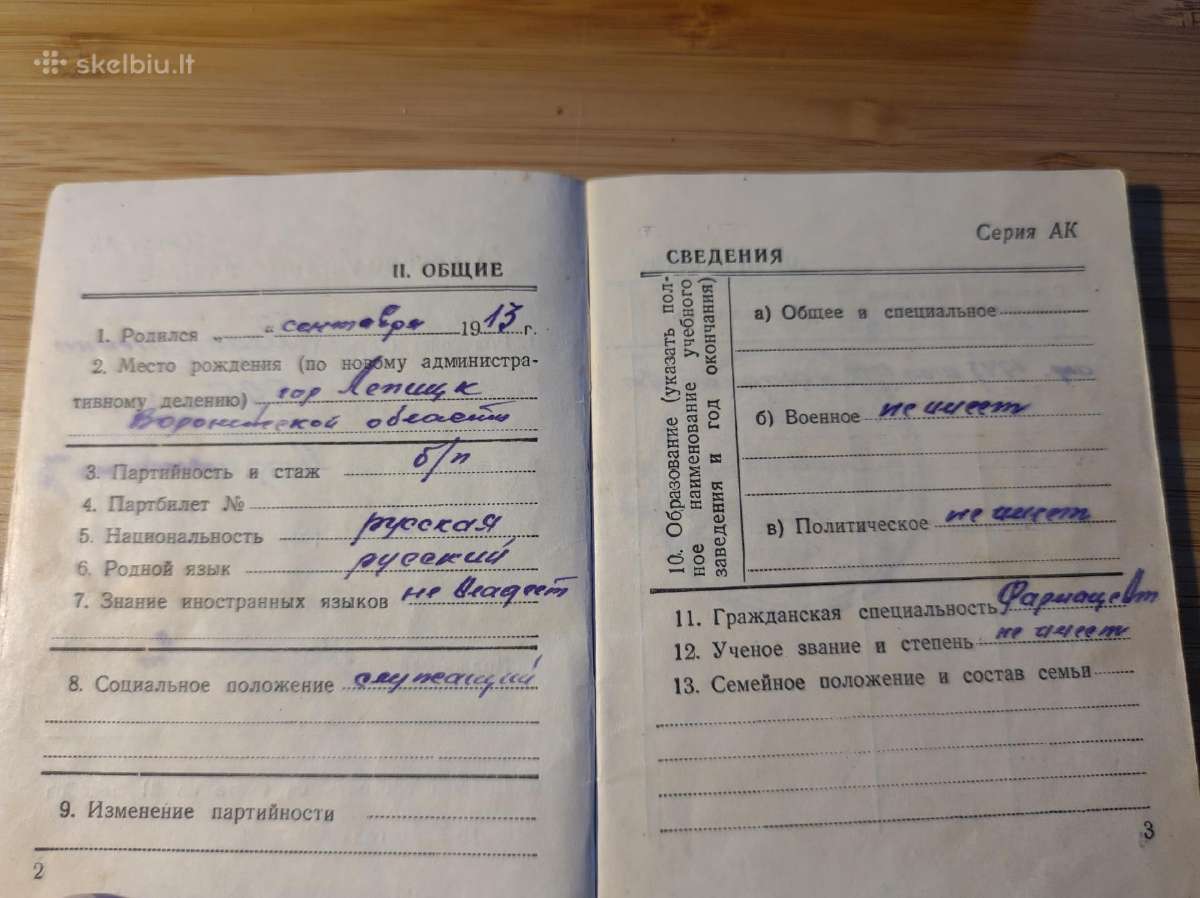 skelbiu.lt
II. ОБЩИЕ
1. Родился „ “ сентября 1913 г.
2. Место рождения (по новому администра-
тивному делению) гор Лепицк
Воронежской области
3. Партийность и стаж б/п
4. Партбилет №
5. Национальность русская
6. Родной язык русский
7. Знание иностранных языков не владеет
8. Социальное положение служащий
9. Изменение партийности
2
Серия АК
СВЕДЕНИЯ
10. Образование (указать пол-
ное наименование учебного
заведения и год окончания)
а) Общее и специальное
б) Военное не имеет
в) Политическое не имеет
11. Гражданская специальность Фармацевт
12. Ученое звание и степень не имеет
13. Семейное положение и состав семьи
3